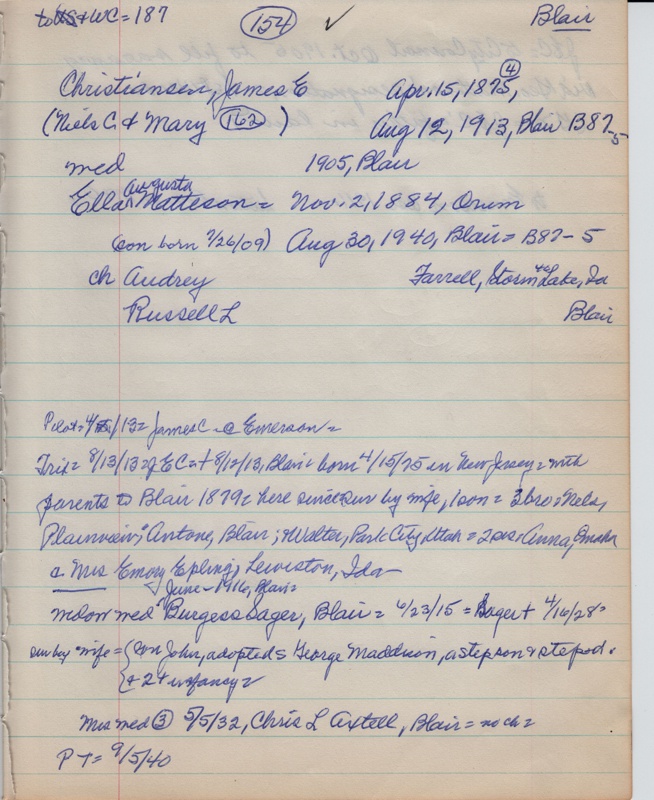 to US & WC = 187 154 ✓ Blair
Christiansen, James E Apr. 15, 1875, 4
(Niels C & Mary 162 ) Aug 12, 1913, Blair B87-5
med 1905, Blair
Ella Augusta Matteson = Nov. 2, 1884, Orum
(son born 7/26/09) Aug 30, 1940, Blair = B87-5
ch Audrey Farrell, Storm Lake, Ia
Russell L Blair
Pilot = 4/ /13 = James C - @ Emerson =
Trib = 8/13/13 = J E C = + 8/12/13, Blair = born 4/15/75 in New Jersey = with
parents to Blair 1879 = here since = sur by wife, 1 son = 3 bro: Nels,
Plainview; Antone, Blair; & Walter, Park City, Utah = 2 sis: Anna, Omaha
& Mrs Emory Epling, Lewiston, Ida -
June - 1916, Blair =
widow med Burgess Sager, Blair = 6/23/15 = Sager + 4/16/28 =
sur by wife = { son John, adopted s George Maddison, a stepson & stepd.
{ + 2 + infancy =
Mrs med 3 5/5/32, Chris L Axtell, Blair = no ch =
P T = 9/5/40